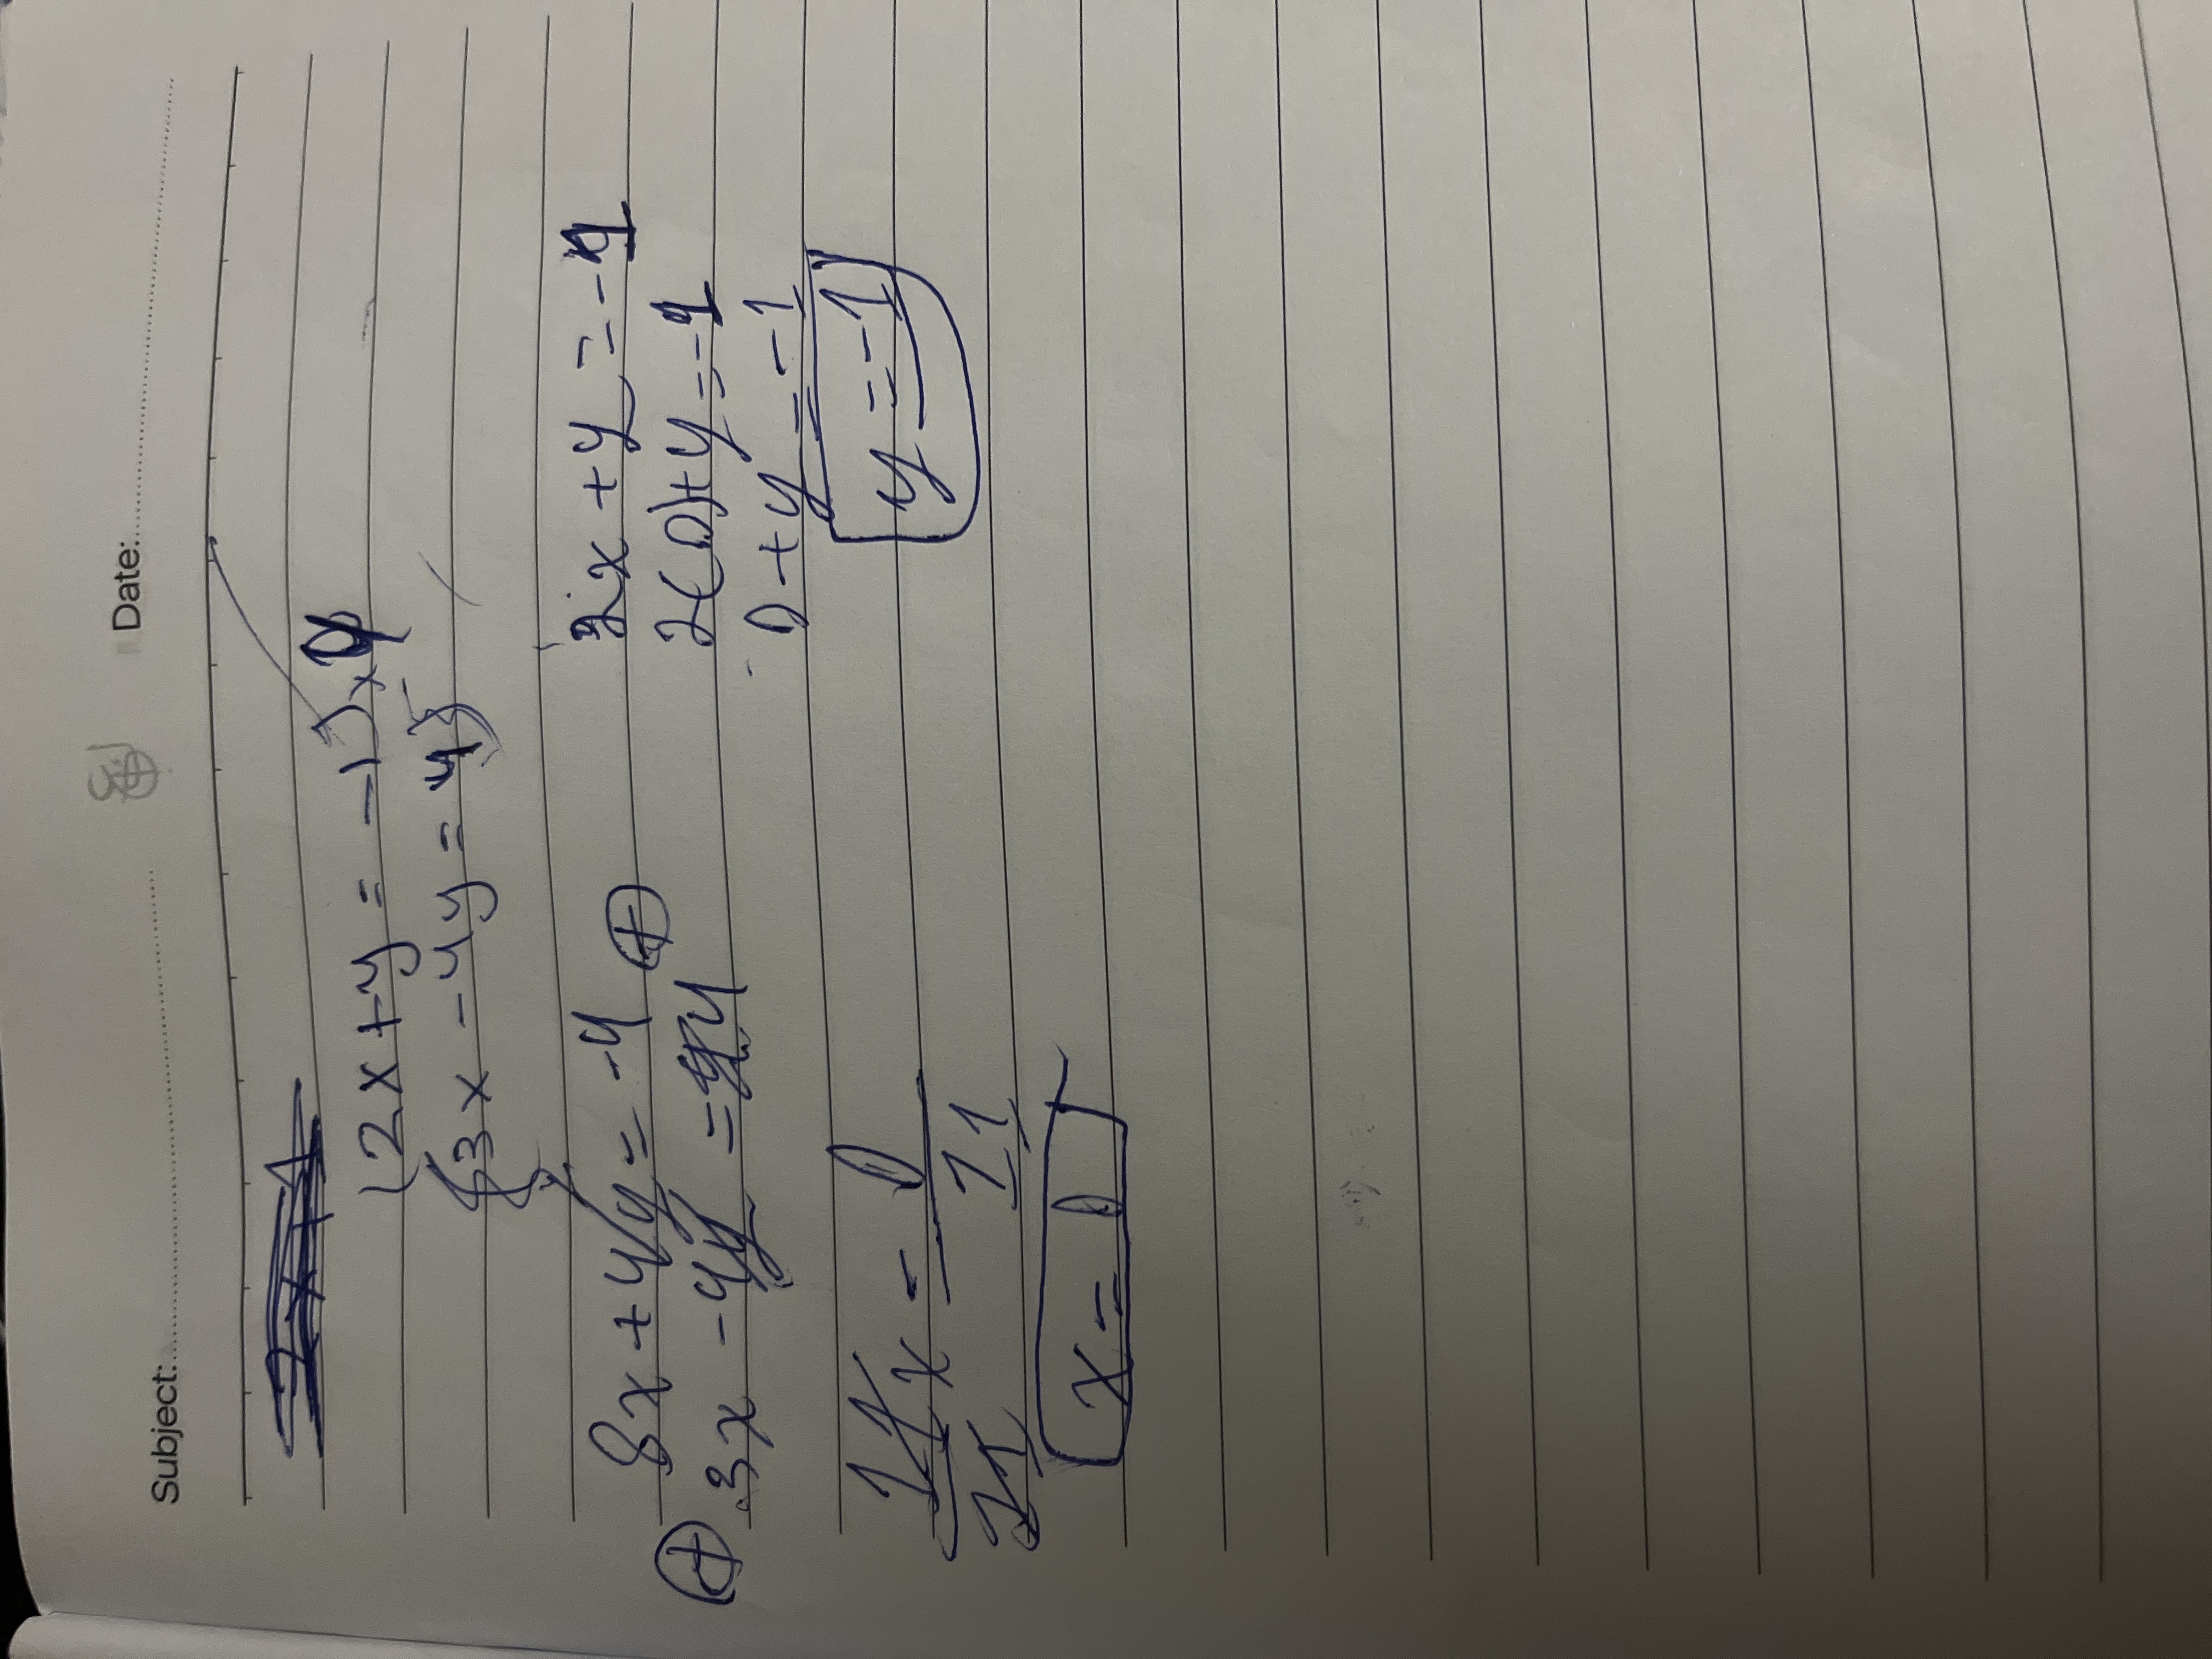 Subject: Date:
2x+y = -1) x 4
3x - 4y = 4
8x + 4y = -4 +
+ 3x - 4y = 4
11x = 0
11 11
x = 0
2x + y = -1
2(0)+y = -1
0+y = -1
y = -1